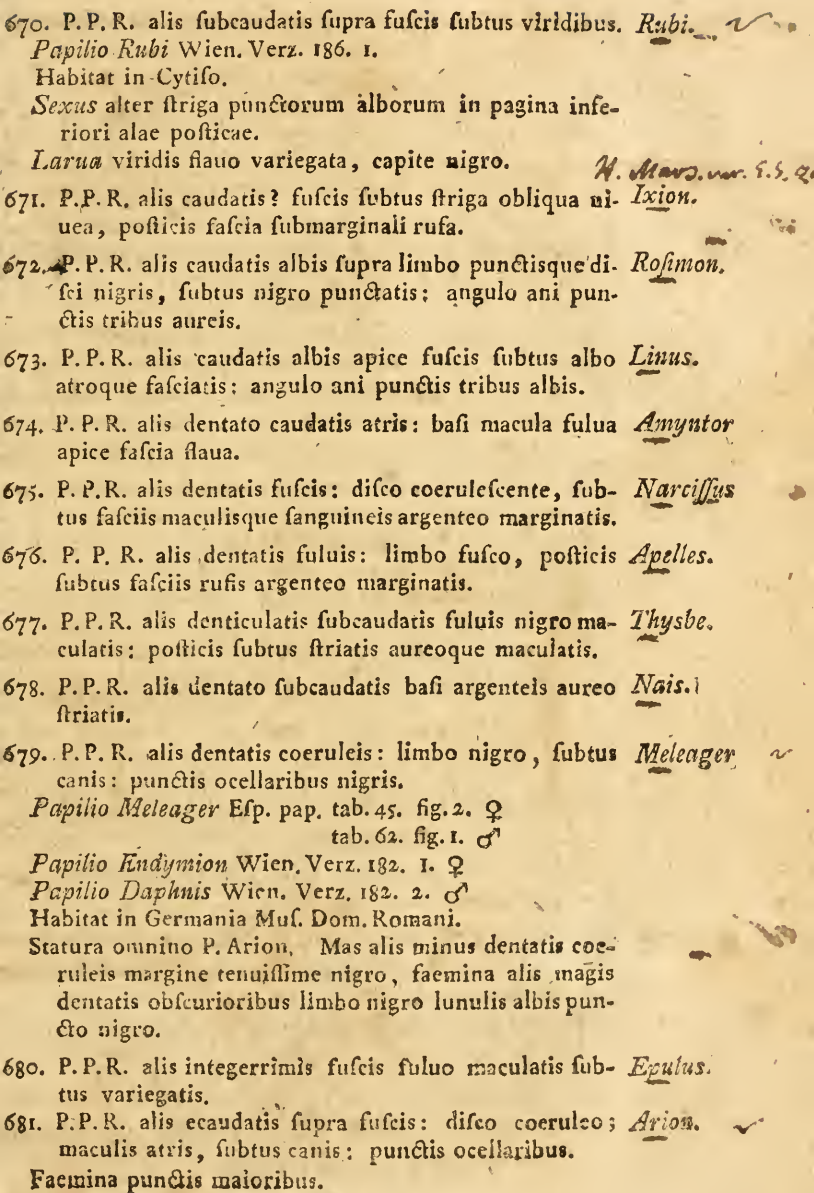 670. P. P. R. alis ſubcaudatis ſupra fuſcis ſubtus viridibus. Rubi.
Papilio Rubi Wien. Verz. 186. 1.
Habitat in Cytiſo.
Sexus alter ſtriga punctorum alborum in pagina infe-
riori alae poſticae.
Larua viridis flauo variegata, capite nigro.
H. Mars. var.
671. P. P. R. alis caudatis? fuſcis ſubtus ſtriga obliqua ni- Ixion.
uea, poſticis faſcia ſubmarginali rufa.
672. P. P. R. alis caudatis albis ſupra limbo punctisque di- Roſimon.
ſci nigris, ſubtus nigro punctatis: angulo ani pun-
ctis tribus aureis.
673. P. P. R. alis caudatis albis apice fuſcis ſubtus albo Linus.
atroque faſciatis: angulo ani punctis tribus albis.
674. P. P. R. alis dentato caudatis atris: baſi macula fulua Amyntor
apice faſcia flaua.
675. P. P. R. alis dentatis fuſcis: diſco coeruleſcente, ſub- Narciſſus
tus faſciis maculisque ſanguineis argenteo marginatis.
676. P. P. R. alis dentatis fuluis: limbo fuſco, poſticis Apelles.
ſubtus faſciis rufis argenteo marginatis.
677. P. P. R. alis denticulatis ſubcaudatis fuluis nigro ma- Thysbe.
culatis: poſticis ſubtus ſtriatis aureoque maculatis.
678. P. P. R. alis dentato ſubcaudatis baſi argenteis aureo Nais.
ſtriatis.
679. P. P. R. alis dentatis coeruleis: limbo nigro, ſubtus Meleager
canis: punctis ocellaribus nigris.
Papilio Meleager Eſp. pap. tab. 45. fig. 2. ♀
tab. 62. fig. 1. ♂
Papilio Endymion Wien. Verz. 182. 1. ♀
Papilio Daphnis Wien. Verz. 182. 2. ♂
Habitat in Germania Muſ. Dom. Romani.
Statura omnino P. Arion. Mas alis minus dentatis coe-
ruleis margine tenuiſſime nigro, faemina alis magis
dentatis obſcurioribus limbo nigro lunulis albis pun-
cto nigro.
680. P. P. R. alis integerrimis fuſcis fuluo maculatis ſub- Epulus.
tus variegatis.
681. P. P. R. alis ecaudatis ſupra fuſcis: diſco coeruleo; Arion.
maculis atris, ſubtus canis: punctis ocellaribus.
Faemina punctis maioribus.